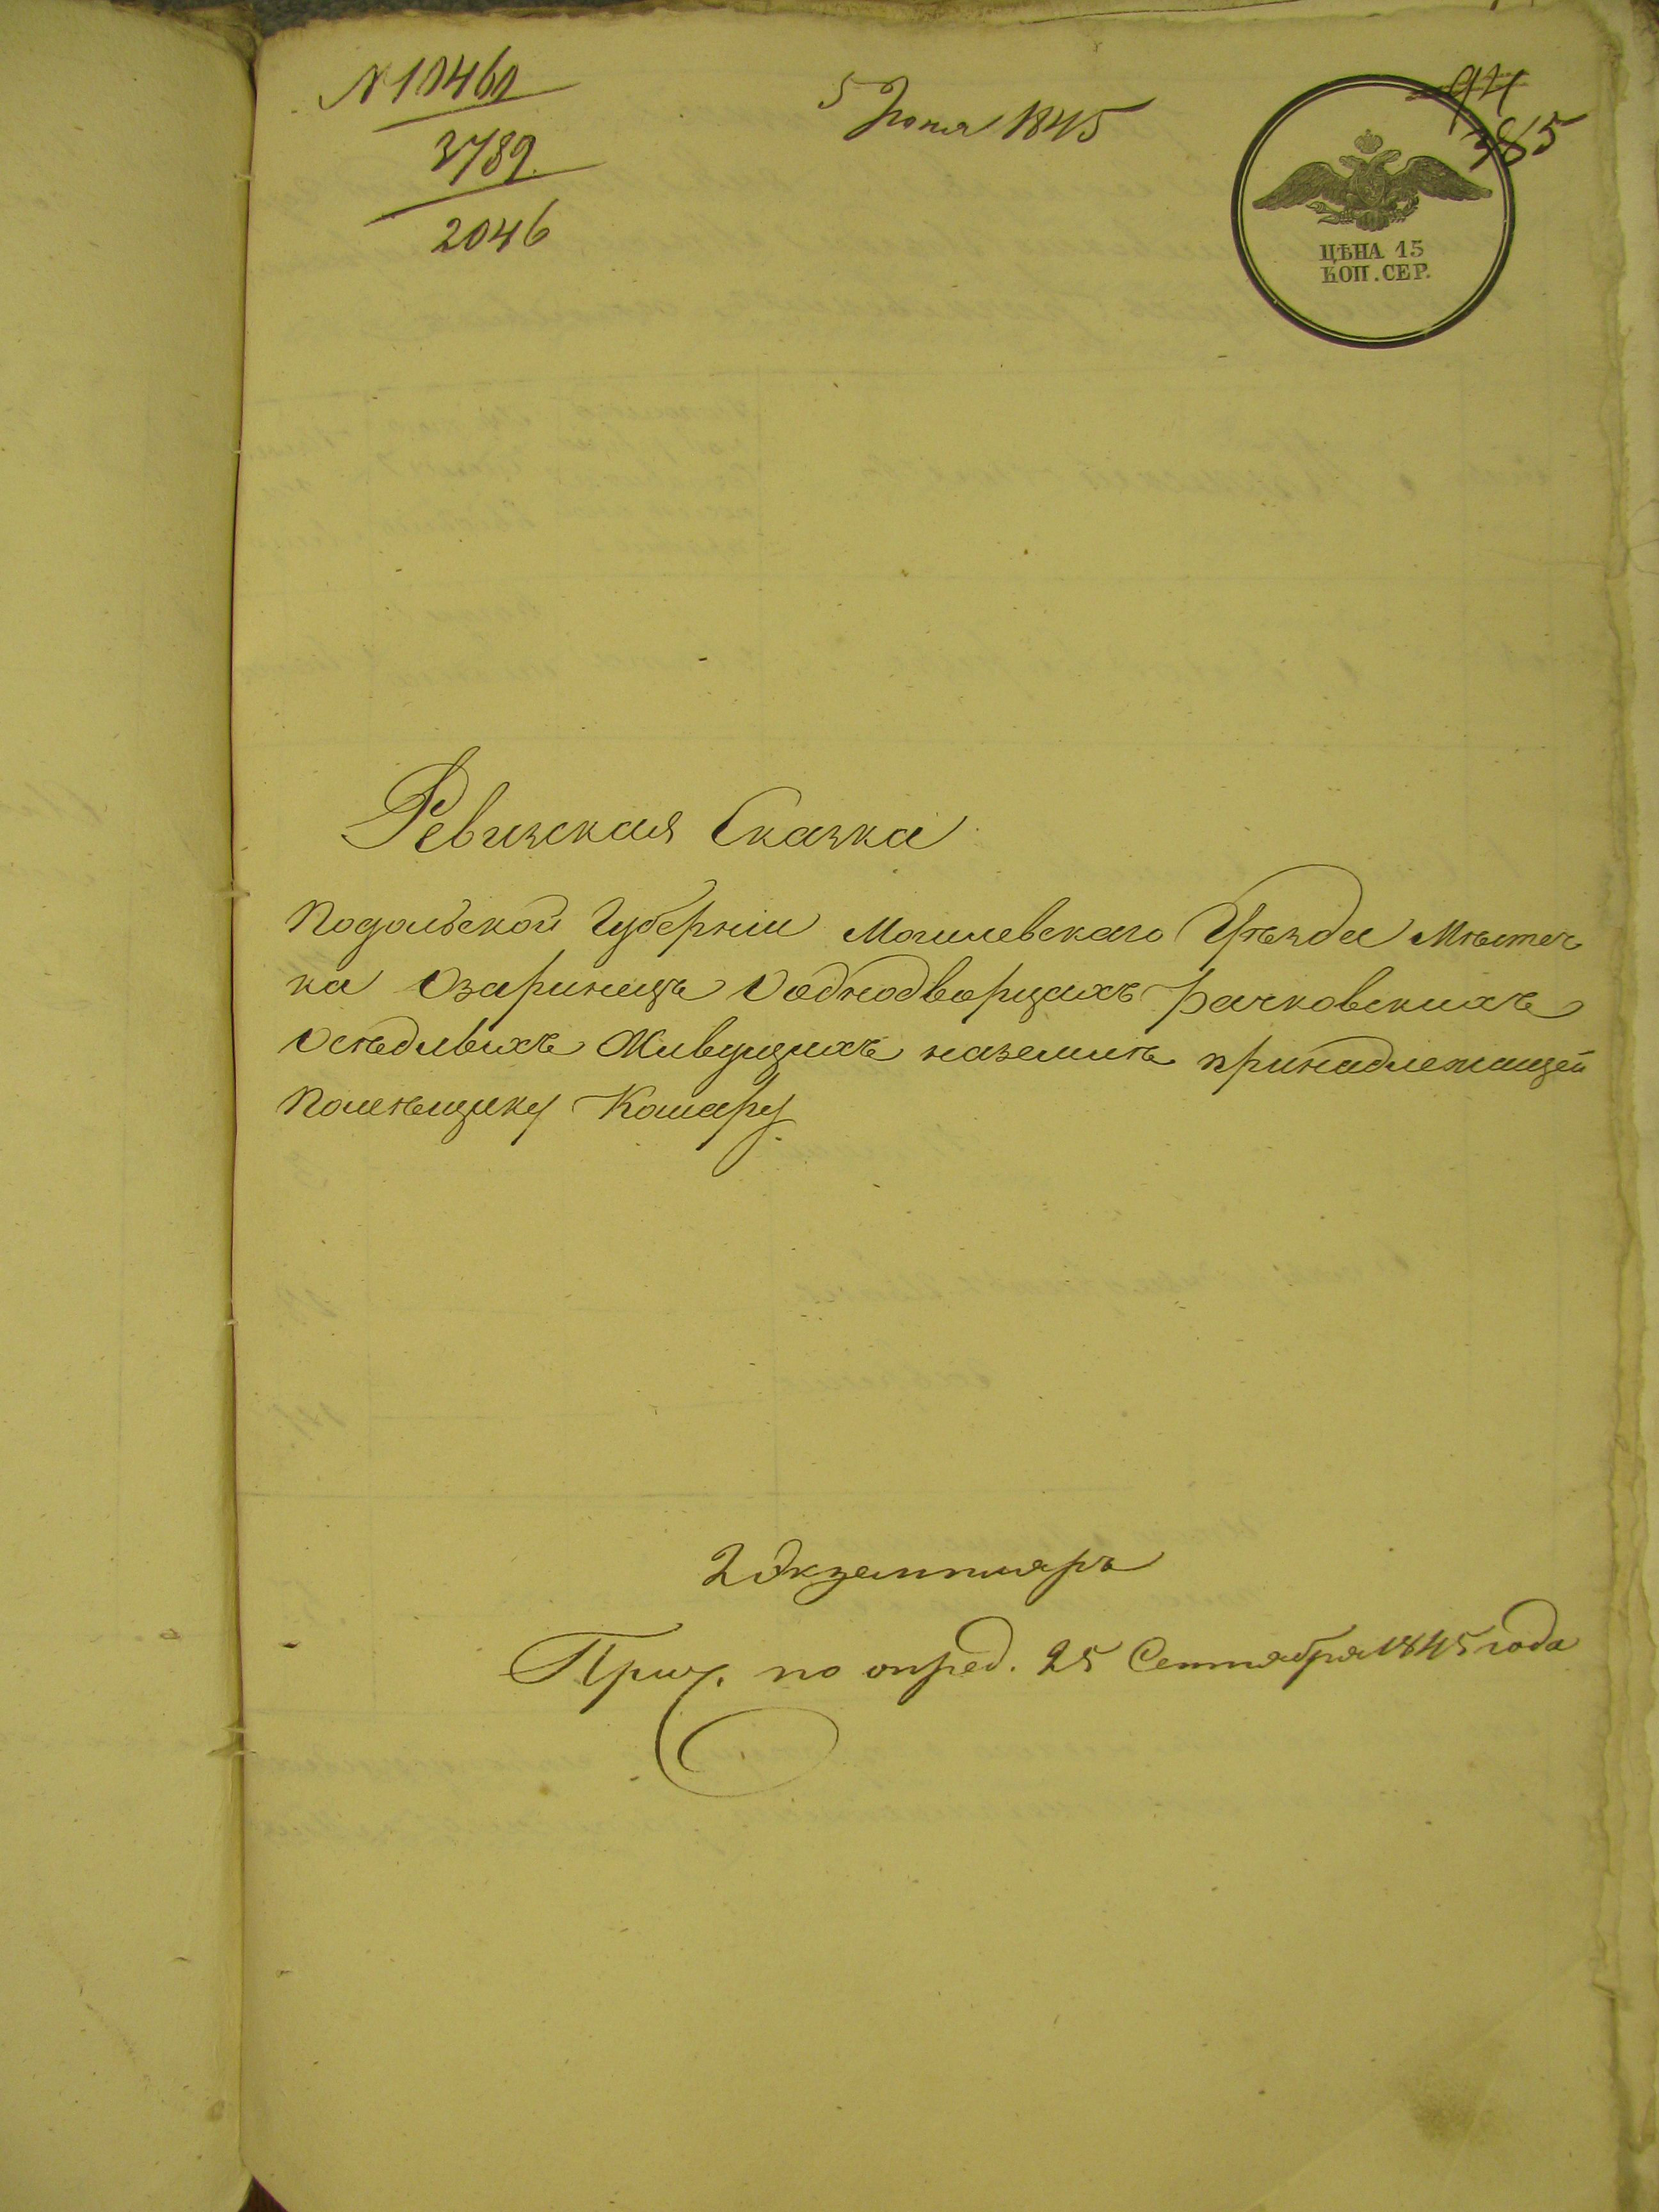 N 11461
3789.
2046
5 Июня 1845
94
385
ЦѢНА 15
КОП. СЕР.
Ревизская Сказка
Подольской Губерніи Могилевскаго Уѣзда Мѣстеч
ка Озаринецъ Ободнодворцахъ Рачковскихъ
Осѣдлыхъ Живущихъ наземлѣ принадлежащей
Помѣщику Комару.
2 Экземпляръ
Прич. по опред. 25 Сентября 1845 года